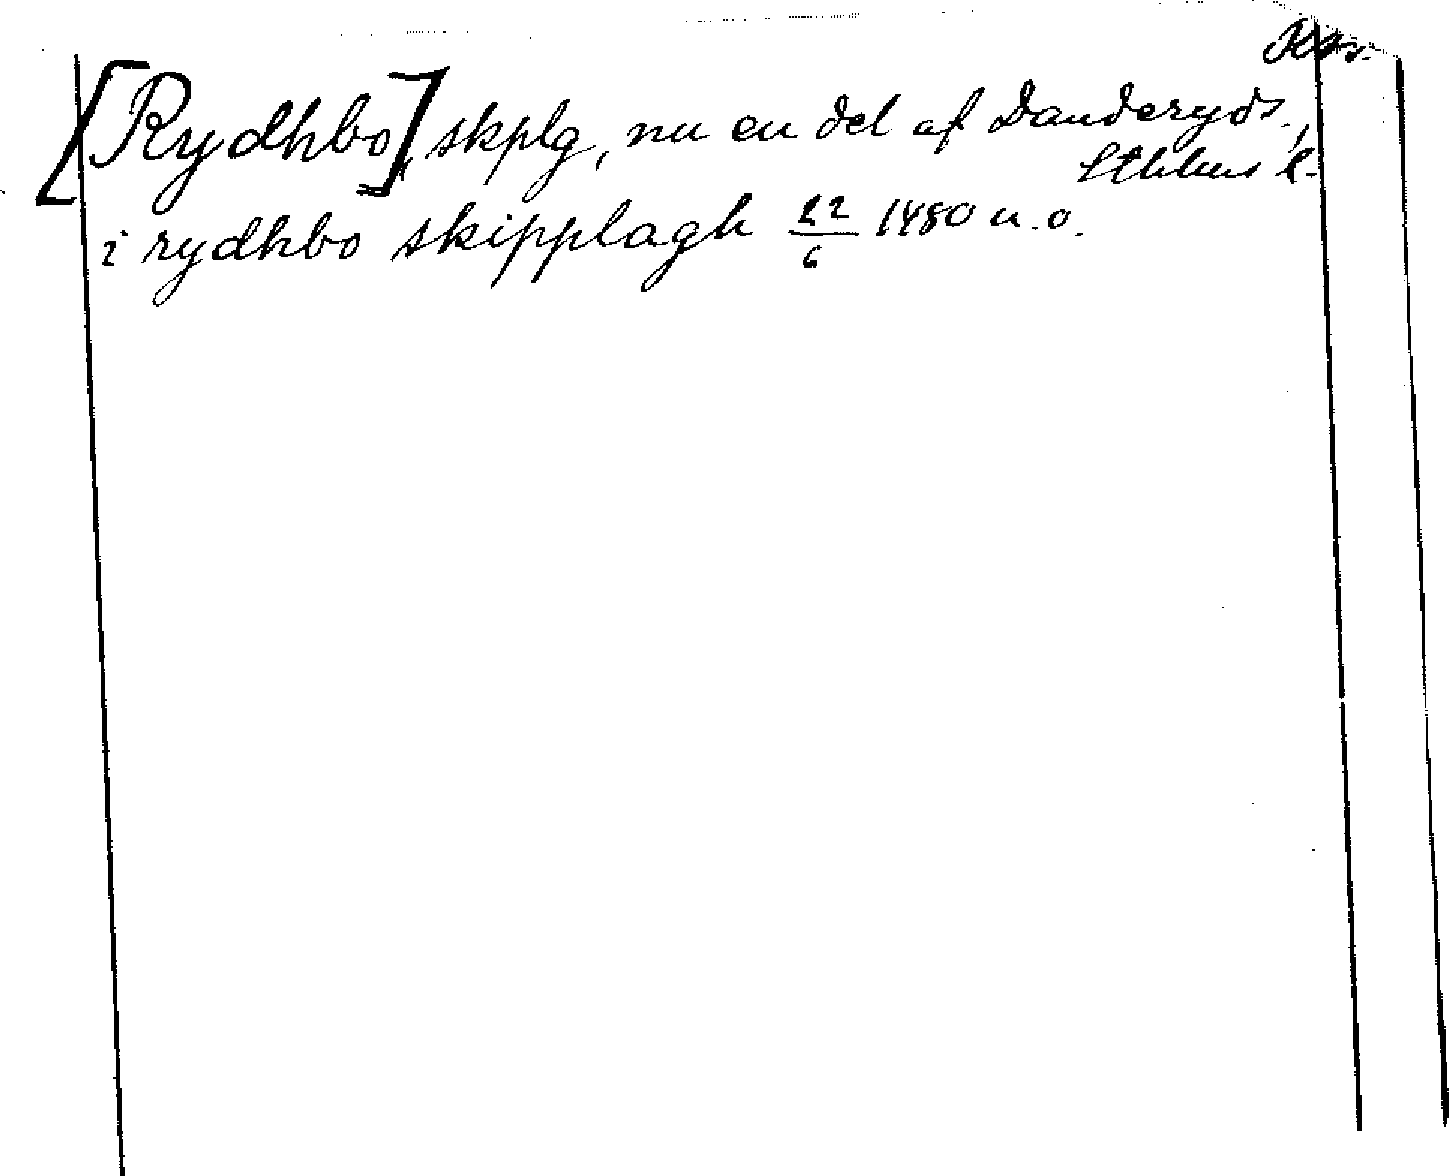 [Rydhbo], skplg, nu en del af Danderyds,
Sthlms l.
i rydhbo skipplagh 22/6 1480 u.o.